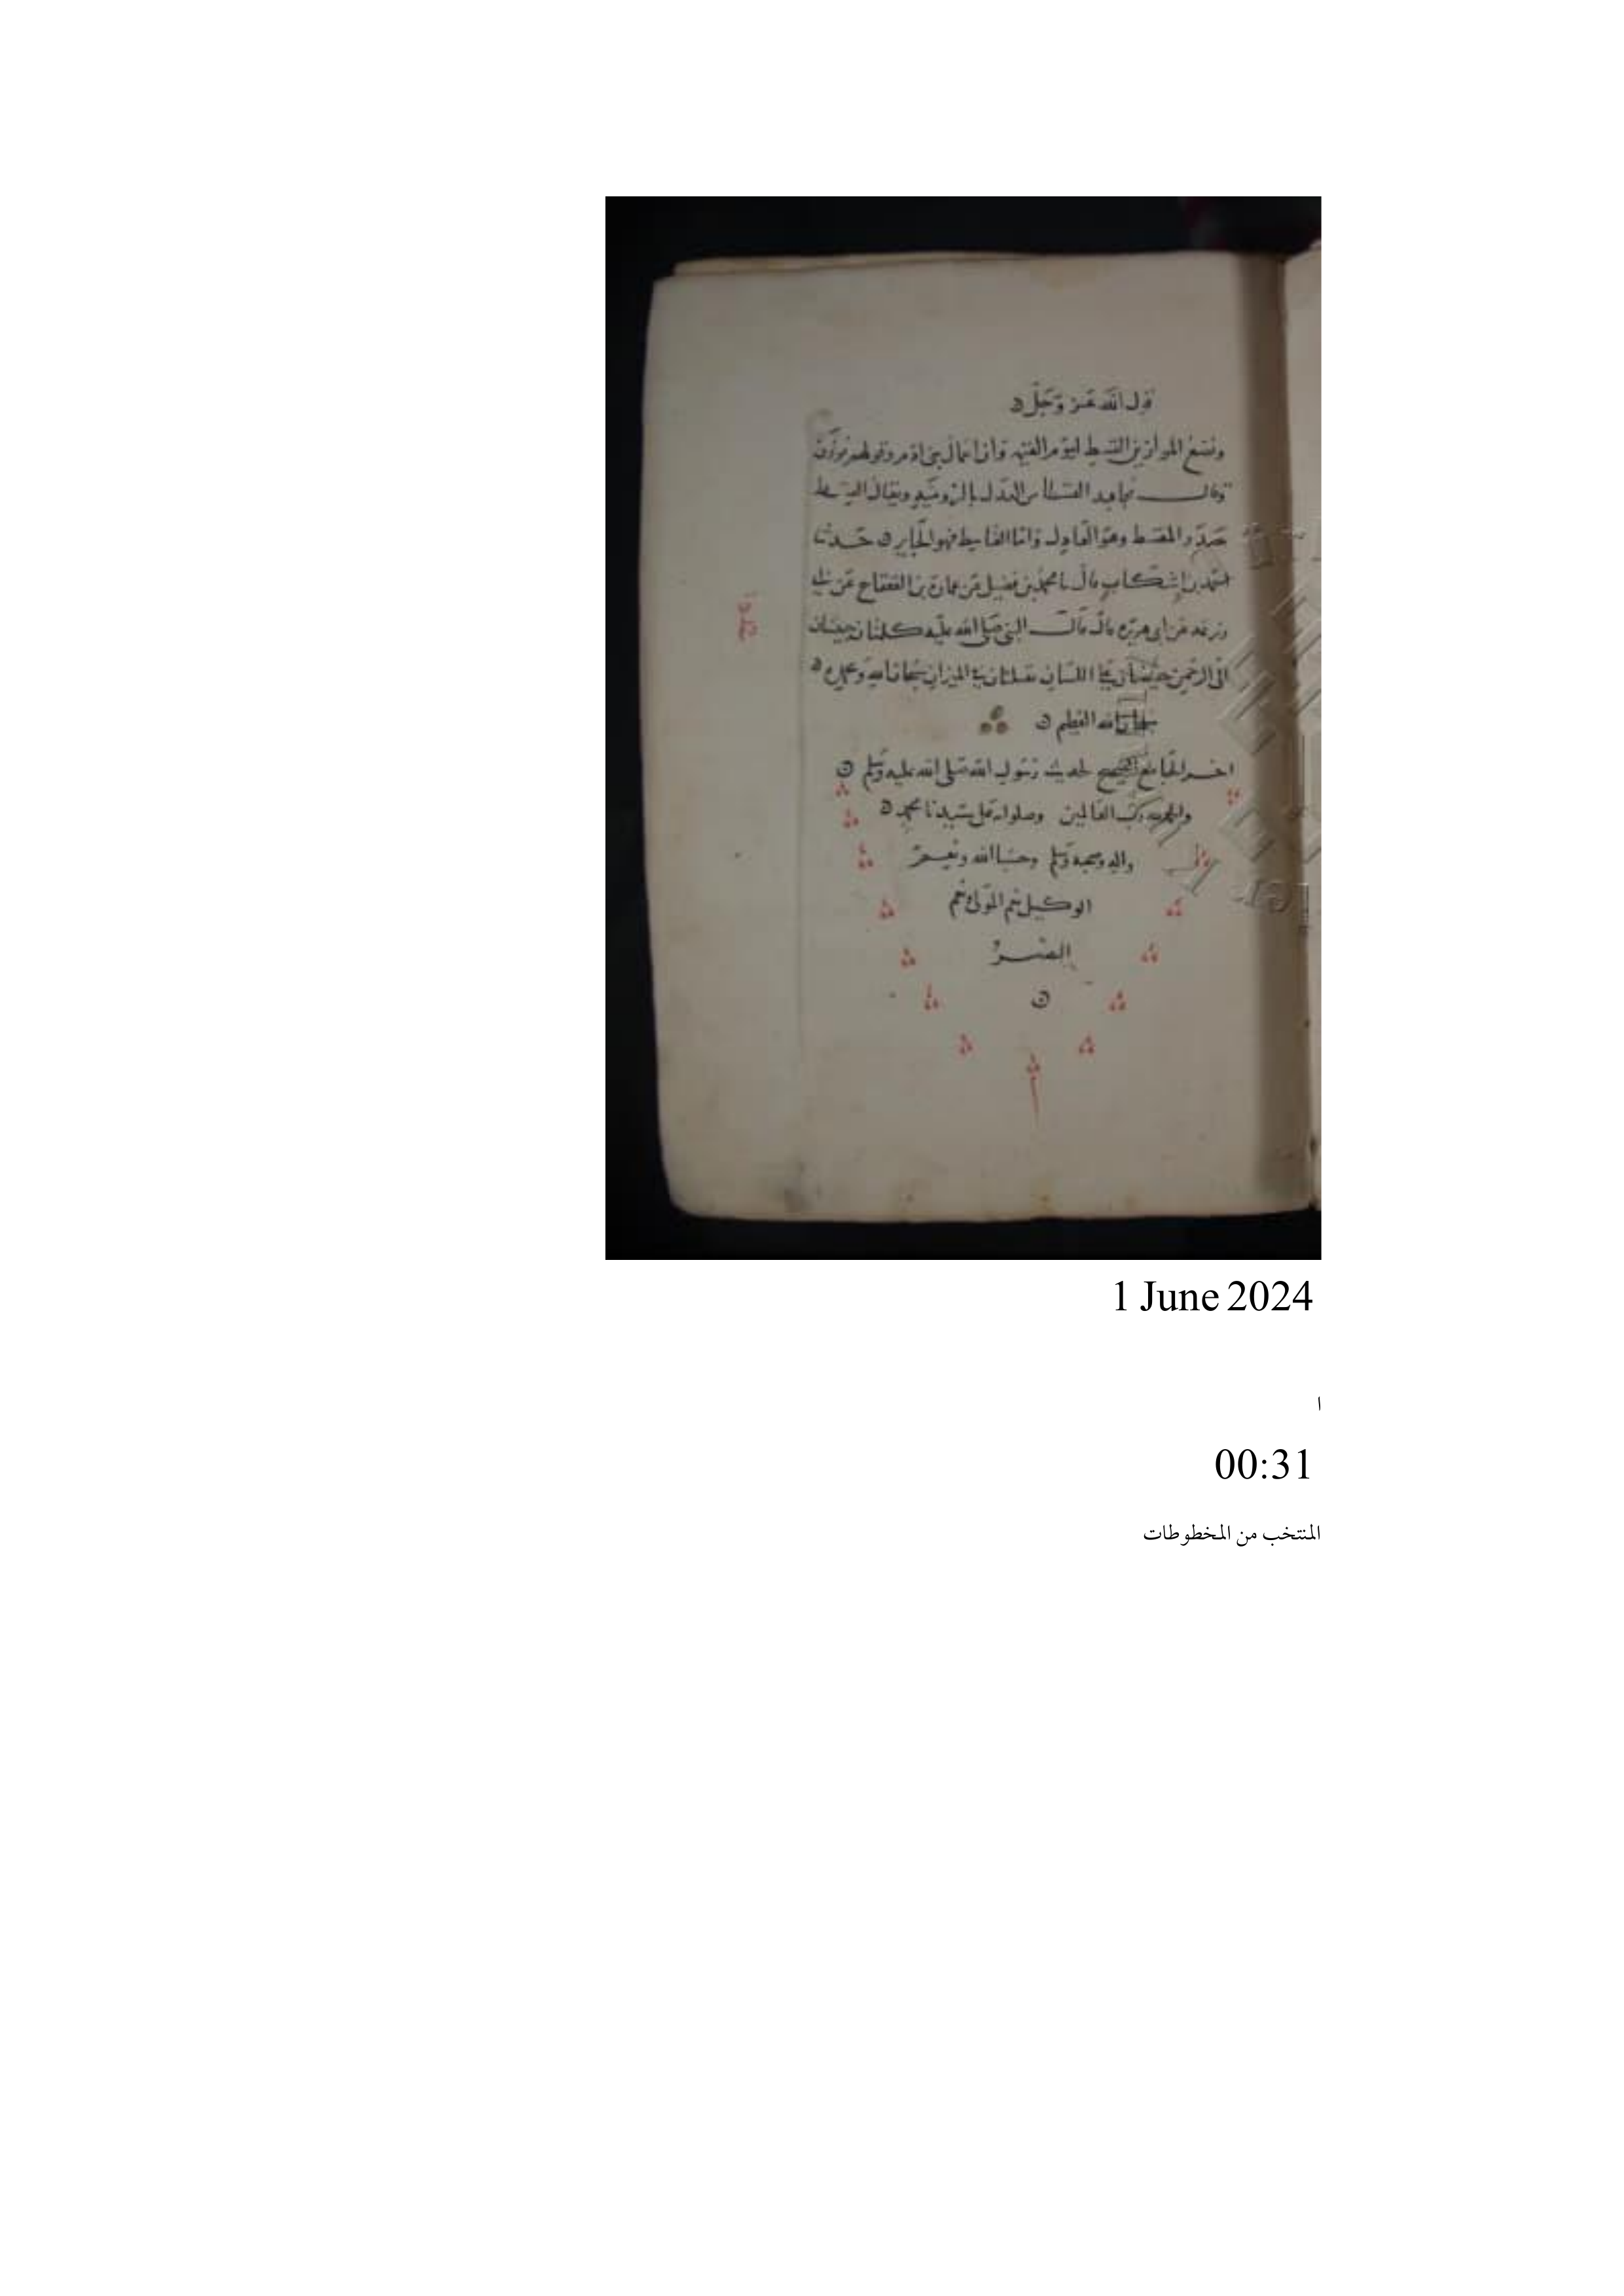 قول الله عز وجل
ونضع الموازين القسط ليوم القيمة وان اعمال بني ادم وقولهم يوزن
وقال مجاهد القسطاس العدل بالرومية ويقال القسط
مصدر المقسط وهو العادل واما القاسط فهو الجاير حدثنا
احمد بن اشكاب قال نا محمد بن فضيل عن عمارة بن القعقاع عن ابي
زرعه عن ابي هريره قال قال النبي صلى الله عليه كلمتان حبيبتان
الى الرحمن خفيفتان على اللسان ثقيلتان في الميزان سبحان الله وبحمده
سبحان الله العظيم
اخر الجامع الصحيح لحديث رسول الله صلى الله عليه وسلم
والحمد لله رب العالمين وصلواته على سيدنا محمد
واله وصحبه وسلم وحسبنا الله ونعم
الوكيل نعم المولى ونعم
النصير
1 June 2024
ا
00:31
المنتخب من المخطوطات